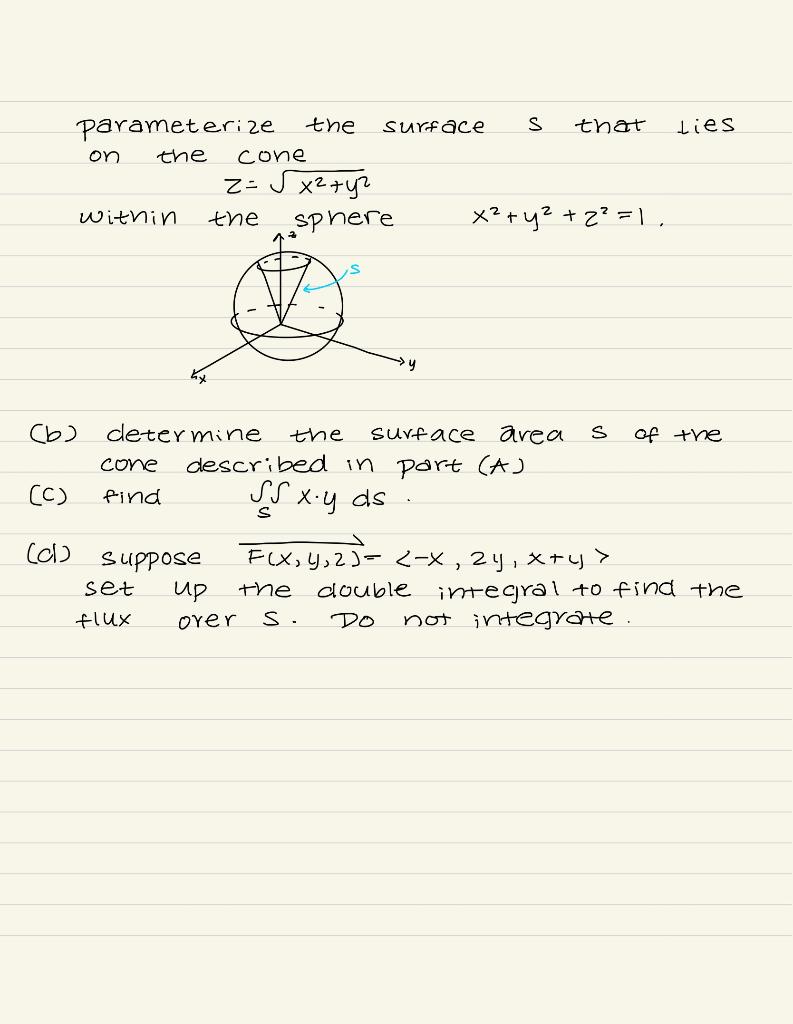 parameterize the surface S that lies
on the cone
z = √x²+y²
within the sphere x²+y²+z²=1.
z
S
x
y
(b) determine the surface area S of the
cone described in part (A)
(C) find ∬ x·y ds.
S
(d) suppose F(x,y,z)= <-x, 2y, x+y>
set up the double integral to find the
flux over S. Do not integrate.